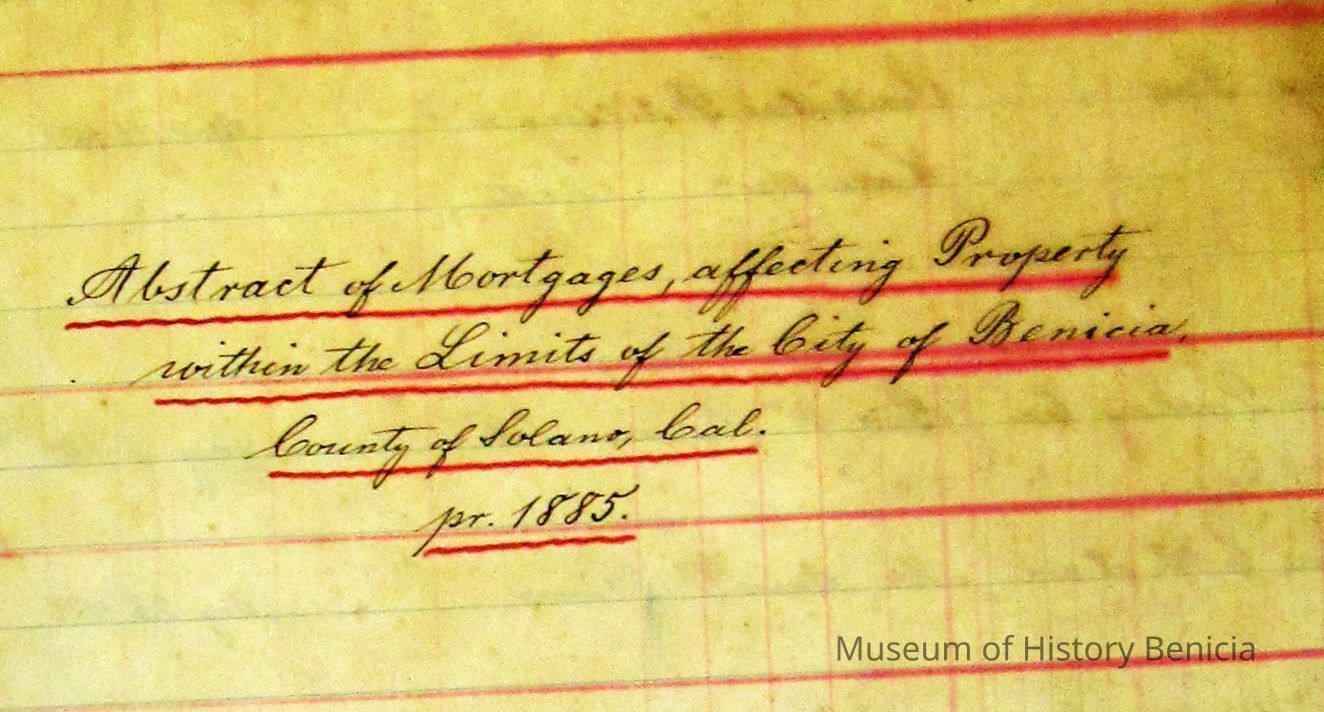 Abstract of Mortgages, affecting Property
within the Limits of the City of Benicia,
County of Solano, Cal.
pr. 1885.
Museum of History Benicia